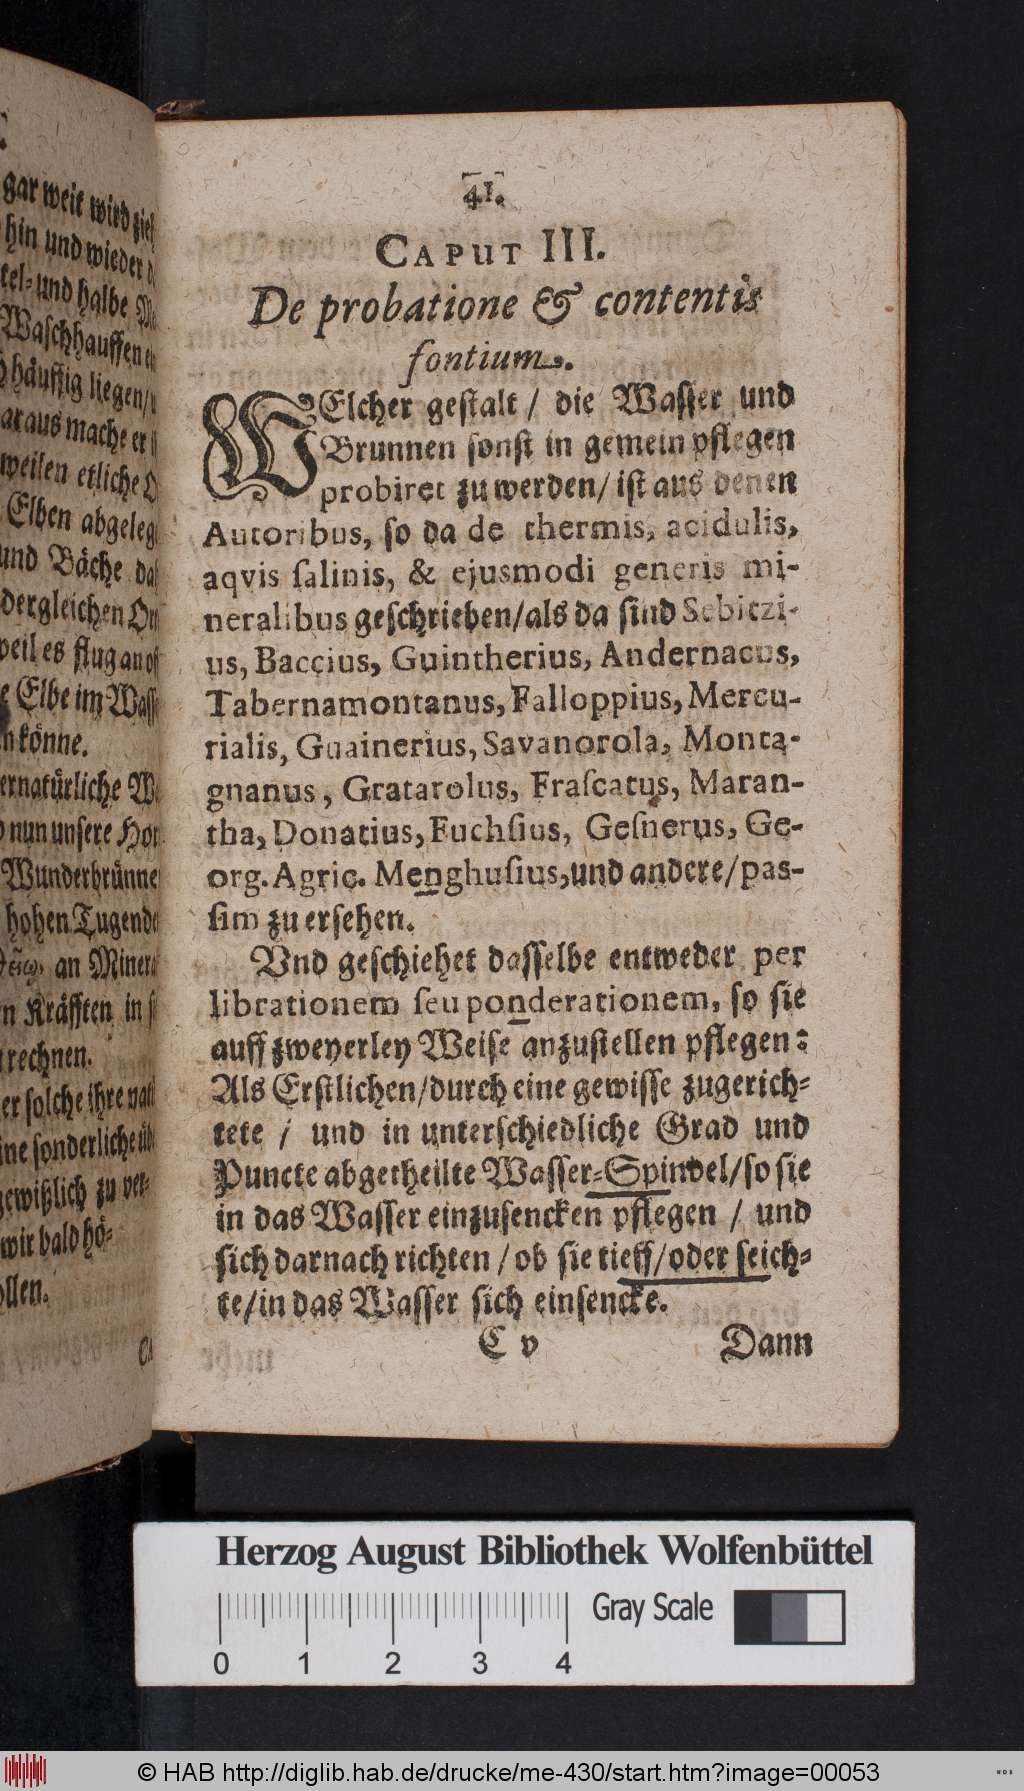 gar weit wird
hin und wieder
tel- und halbe
Waschhauffen
häuffig liegen/
araus mache er
weilen etliche
Elben abgeleg
und Bäche
dergleichen
weil es flug an
Elbe im
könne.
ernatürliche
nun unsere
Wunderbrünne
hohen Tugende
an Minera
Kräfften in
rechnen.
er solche ihre
ine sonderliche
gewißlich zu ver-
wir bald hö-
ollen.
41.
CAPUT III.
De probatione & contentis
fontium.
WElcher gestalt / die Wasser und
Brunnen sonst in gemein pflegen
probiret zu werden / ist aus denen
Autoribus, so da de thermis, acidulis,
aqvis salinis, & ejusmodi generis mi-
neralibus geschrieben / als da sind Sebitzi-
us, Baccius, Guintherius, Andernacus,
Tabernamontanus, Falloppius, Mercu-
rialis, Guainerius, Savanorola, Monta-
gnanus, Gratarolus, Frascatus, Maran-
tha, Donatius, Fuchsius, Gesnerus, Ge-
org. Agric. Menghusius, und andere / pas-
sim zu ersehen.
Vnd geschiehet dasselbe entweder per
librationem seu ponderationem, so sie
auff zweyerley Weise anzustellen pflegen:
Als Erstlichen / durch eine gewisse zugerich-
tete / und in unterschiedliche Grad und
Puncte abgetheilte Wasser-Spindel / so sie
in das Wasser einzusencken pflegen / und
sich darnach richten / ob sie tieff / oder seich-
te / in das Wasser sich einsencke.
C v Dann
Herzog August Bibliothek Wolfenbüttel
Gray Scale
0 1 2 3 4
© HAB http://diglib.hab.de/drucke/me-430/start.htm?image=00053